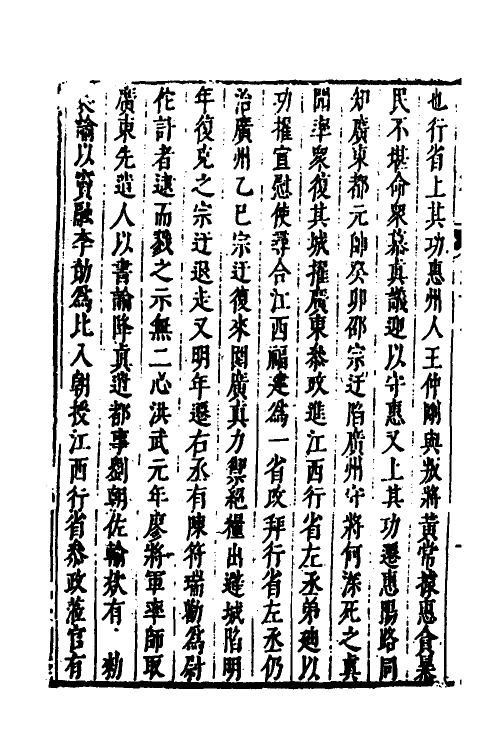 也行省上其功惠州人王仲剛與叛將黃常據惠貪暴
民不堪命眾慕真議迎以守惠又上其功遷惠陽路同
知廣東都元帥癸卯邵宗迂陷廣州守將何深死之真
聞率眾復其城擢廣東叅政進江西行省左丞弟廸以
功擢宣慰使尋合江西福建為一省改拜行省左丞仍
治廣州乙巳宗迂復來圍廣真力禦絕糧出避城陷明
年復克之宗迂退走又明年遷右丞有陳符瑞勸為尉
佗計者逮而戮之示無二心洪武元年廖將軍率師取
廣東先遣人以書諭降真遣都事劉朝佐輸欵有 勑
諭以竇融李勣為比入朝授江西行省叅政蒞官有